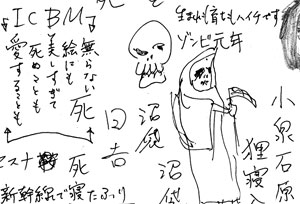 生まれも育ちもハイチです
ゾンビ元年
小泉石原
狸寝入
沼袋
沼袋
日吉
ICBM
無らない死
絵にも
美しすぎて
死ぬことも
愛することも
死
新幹線で寝たふり